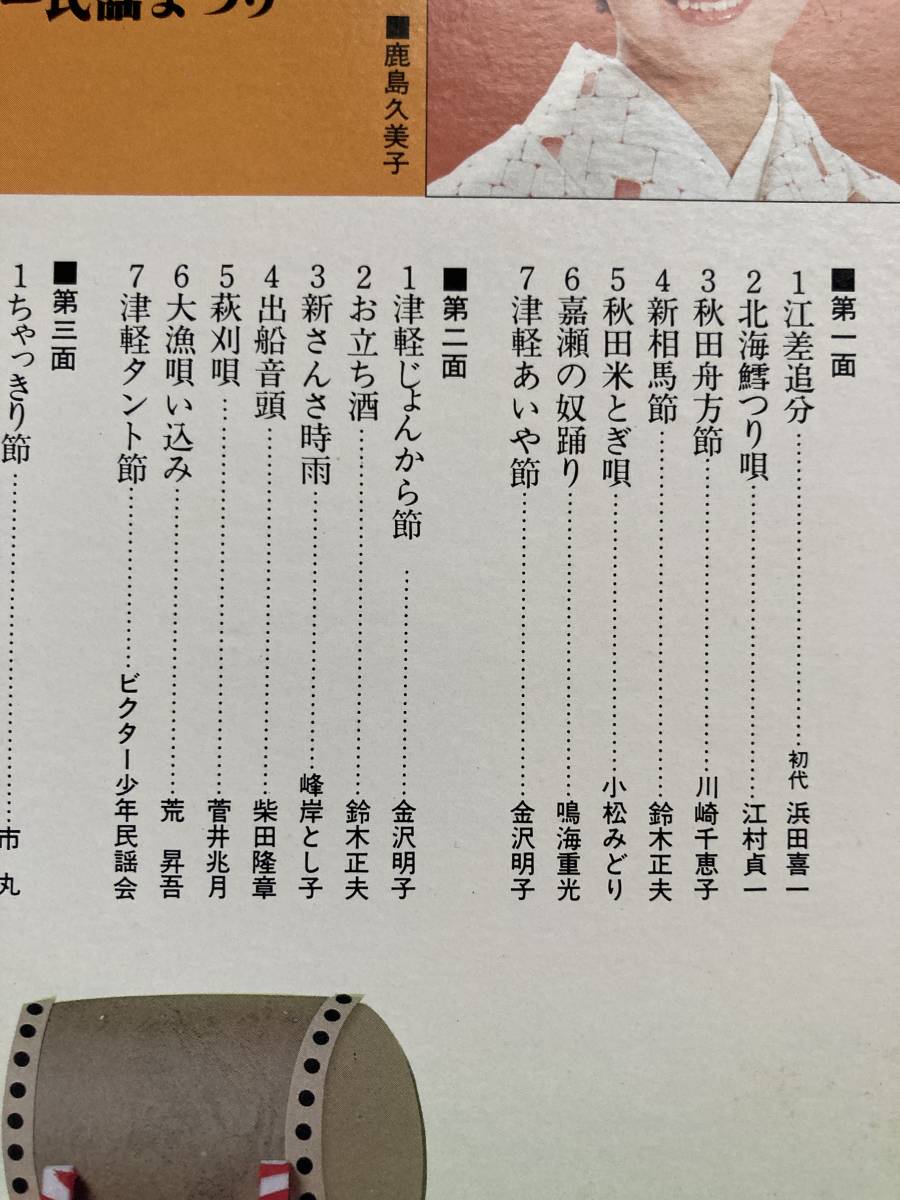 民謡まつり
■鹿島久美子
■第一面
1江差追分 初代 浜田喜一
2北海鱈つり唄 江村貞一
3秋田舟方節 川崎千恵子
4新相馬節 鈴木正夫
5秋田米とぎ唄 小松みどり
6嘉瀬の奴踊り 鳴海重光
7津軽あいや節 金沢明子
■第二面
1津軽じょんから節 金沢明子
2お立ち酒 鈴木正夫
3新さんさ時雨 峰岸とし子
4出船音頭 柴田隆章
5萩刈唄 菅井兆月
6大漁唄い込み 荒 昇吾
7津軽タント節 ビクター少年民謡会
■第三面
1ちゃっきり節 市 丸